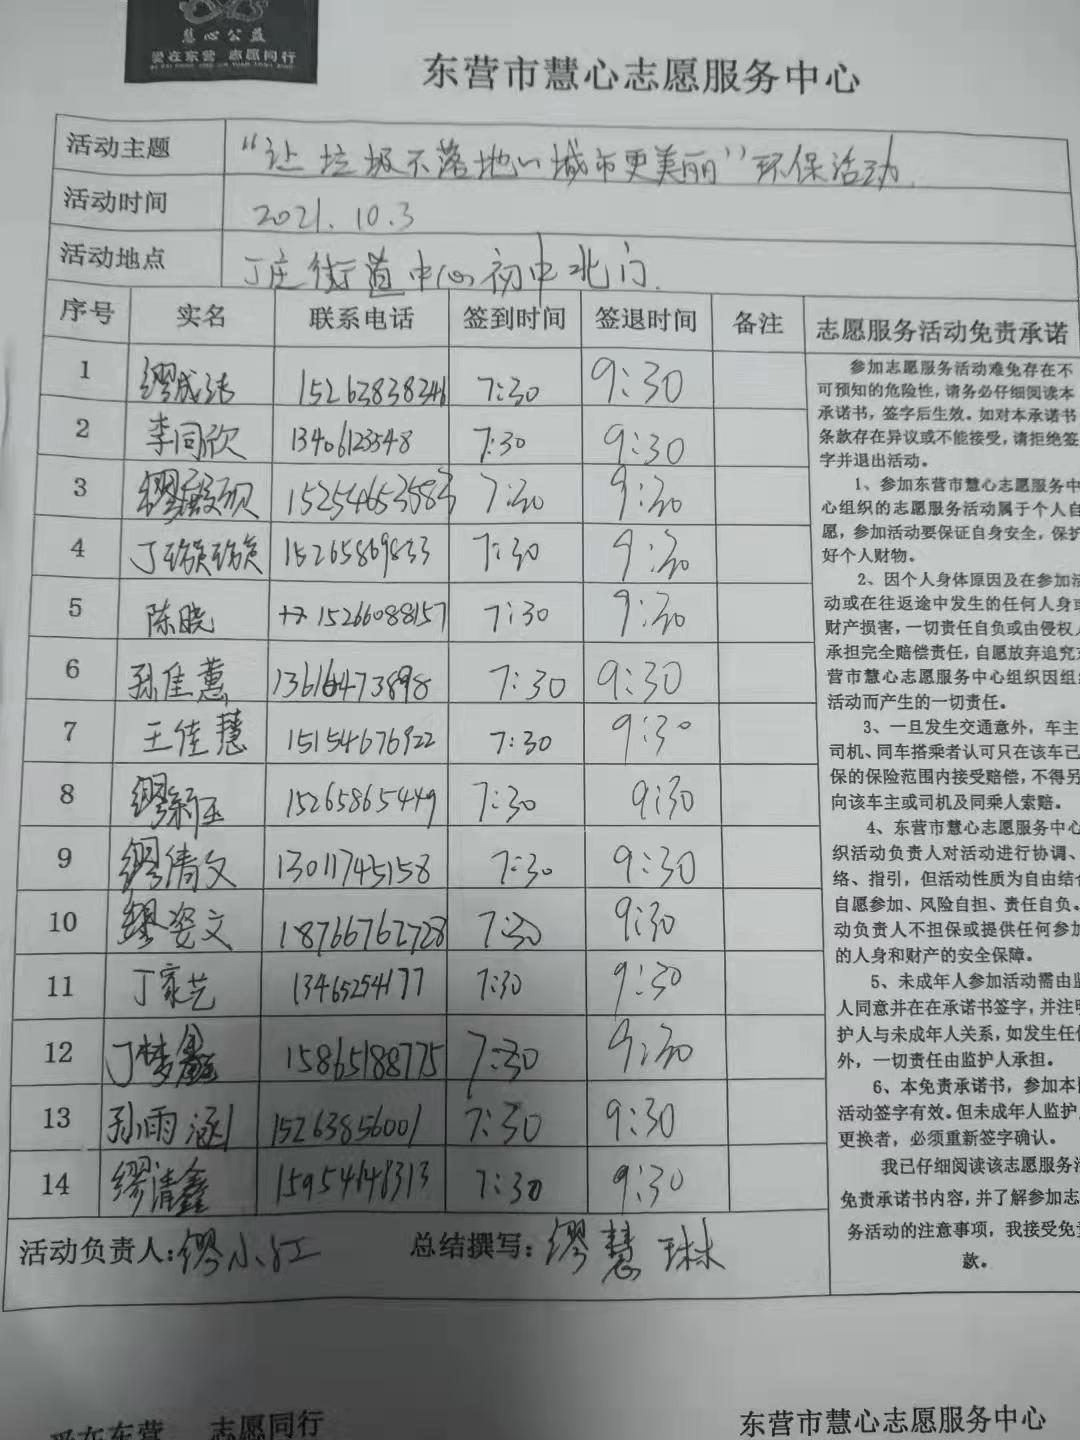 慧心公益
爱在东营 志愿同行
东营市慧心志愿服务中心
活动主题 “让垃圾不落地 城市更美丽”环保活动
活动时间 2021.10.3
活动地点 丁庄街道中心初中北门
序号 实名 联系电话 签到时间 签退时间 备注 志愿服务活动免责承诺
1 缪成 15263838346 7:30 9:30
2 李同欣 13406123548 7:30 9:30
3 缪硕 15254653583 7:30 9:30
4 丁 15265869833 7:30 9:30
5 陈晓 15266088157 7:30 9:30
6 孙佳蕙 13616473898 7:30 9:30
7 王佳慧 15154676922 7:30 9:30
8 缪新玉 15265865449 7:30 9:30
9 缪倩文 13011745158 7:30 9:30
10 缪姿文 18766762728 7:30 9:30
11 丁家艺 13465254177 7:30 9:30
12 丁梦鑫 15865188775 7:30 9:30
13 孙雨涵 15263856001 7:30 9:30
14 缪清鑫 15954648313 7:30 9:30
活动负责人:缪小红 总结撰写:缪慧琳
参加志愿服务活动难免存在不
可预知的危险性,请务必仔细阅读本
承诺书,签字后生效。如对本承诺书
条款存在异议或不能接受,请拒绝签
字并退出活动。
1、参加东营市慧心志愿服务中
心组织的志愿服务活动属于个人自
愿,参加活动要保证自身安全,保护
好个人财物。
2、因个人身体原因及在参加活
动或在往返途中发生的任何人身或
财产损害,一切责任自负或由侵权人
承担完全赔偿责任,自愿放弃追究东
营市慧心志愿服务中心组织因组织
活动而产生的一切责任。
3、一旦发生交通意外,车主
司机、同车搭乘者认可只在该车已
保的保险范围内接受赔偿,不得另
向该车主或司机及同乘人索赔。
4、东营市慧心志愿服务中心
织活动负责人对活动进行协调、
络、指引,但活动性质为自由结合
自愿参加、风险自担、责任自负。
动负责人不担保或提供任何参加
的人身和财产的安全保障。
5、未成年人参加活动需由监
人同意并在在承诺书签字,并注明
护人与未成年人关系,如发生任何
外,一切责任由监护人承担。
6、本免责承诺书,参加本
活动签字有效。但未成年人监护
更换者,必须重新签字确认。
我已仔细阅读该志愿服务活
免责承诺书内容,并了解参加志
务活动的注意事项,我接受免责
款。
爱在东营 志愿同行
东营市慧心志愿服务中心